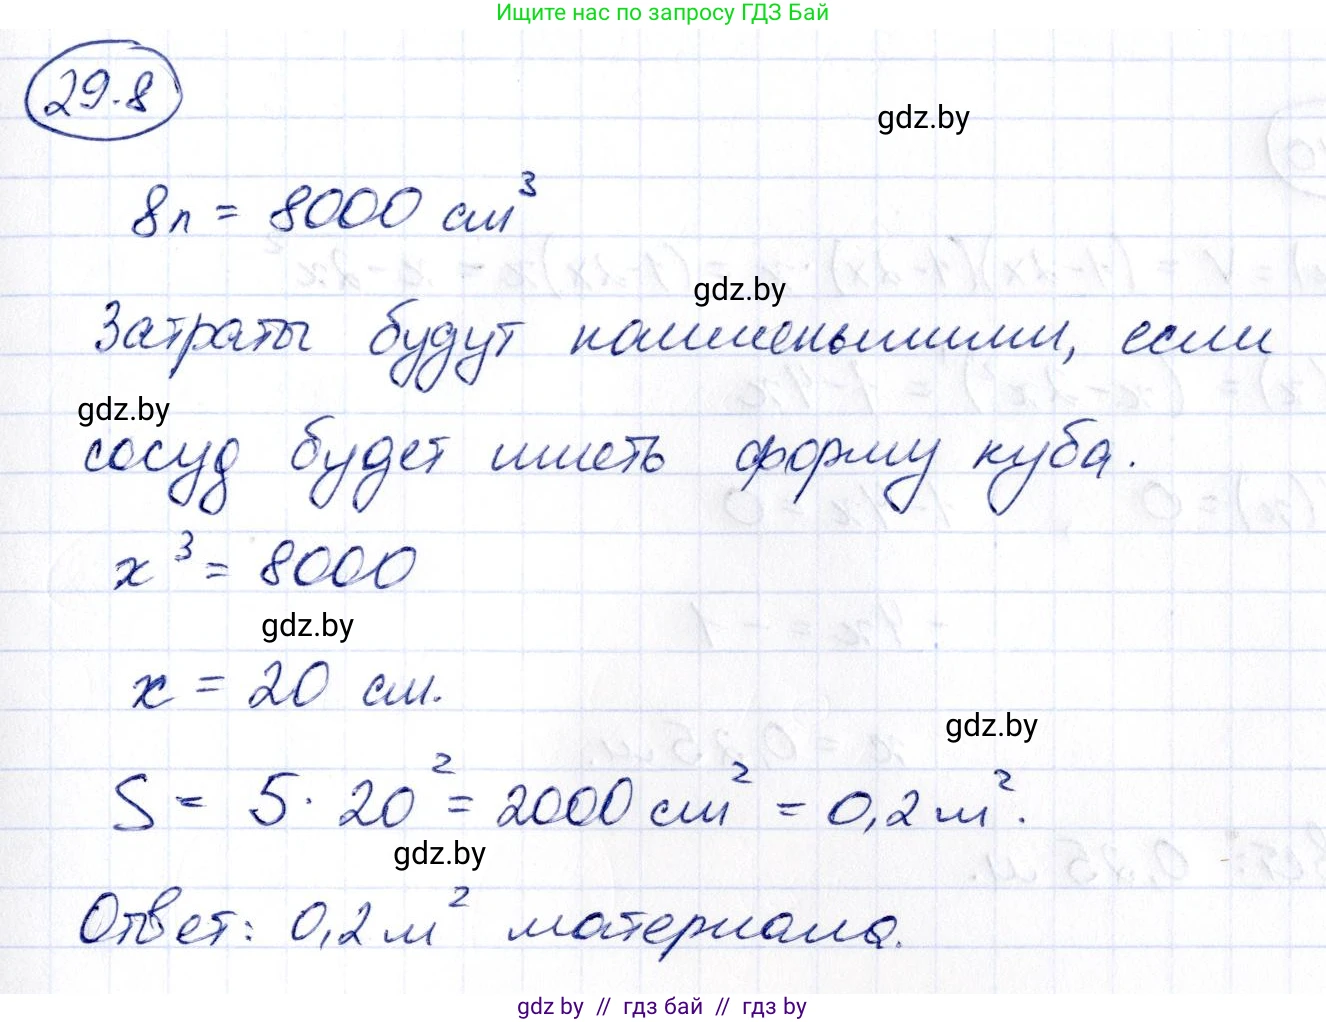 Ищите нас по запросу ГДЗ Бай
29.8
gdz.by
8л = 8000 см³
gdz.by
Затраты будут наименьшими, если
gdz.by
сосуд будет иметь форму куба.
x³ = 8000
gdz.by
x = 20 см.
gdz.by
S = 5 · 20² = 2000 см² = 0,2 м².
gdz.by
Ответ: 0,2 м² материала.
gdz by // гдз бай // гдз by